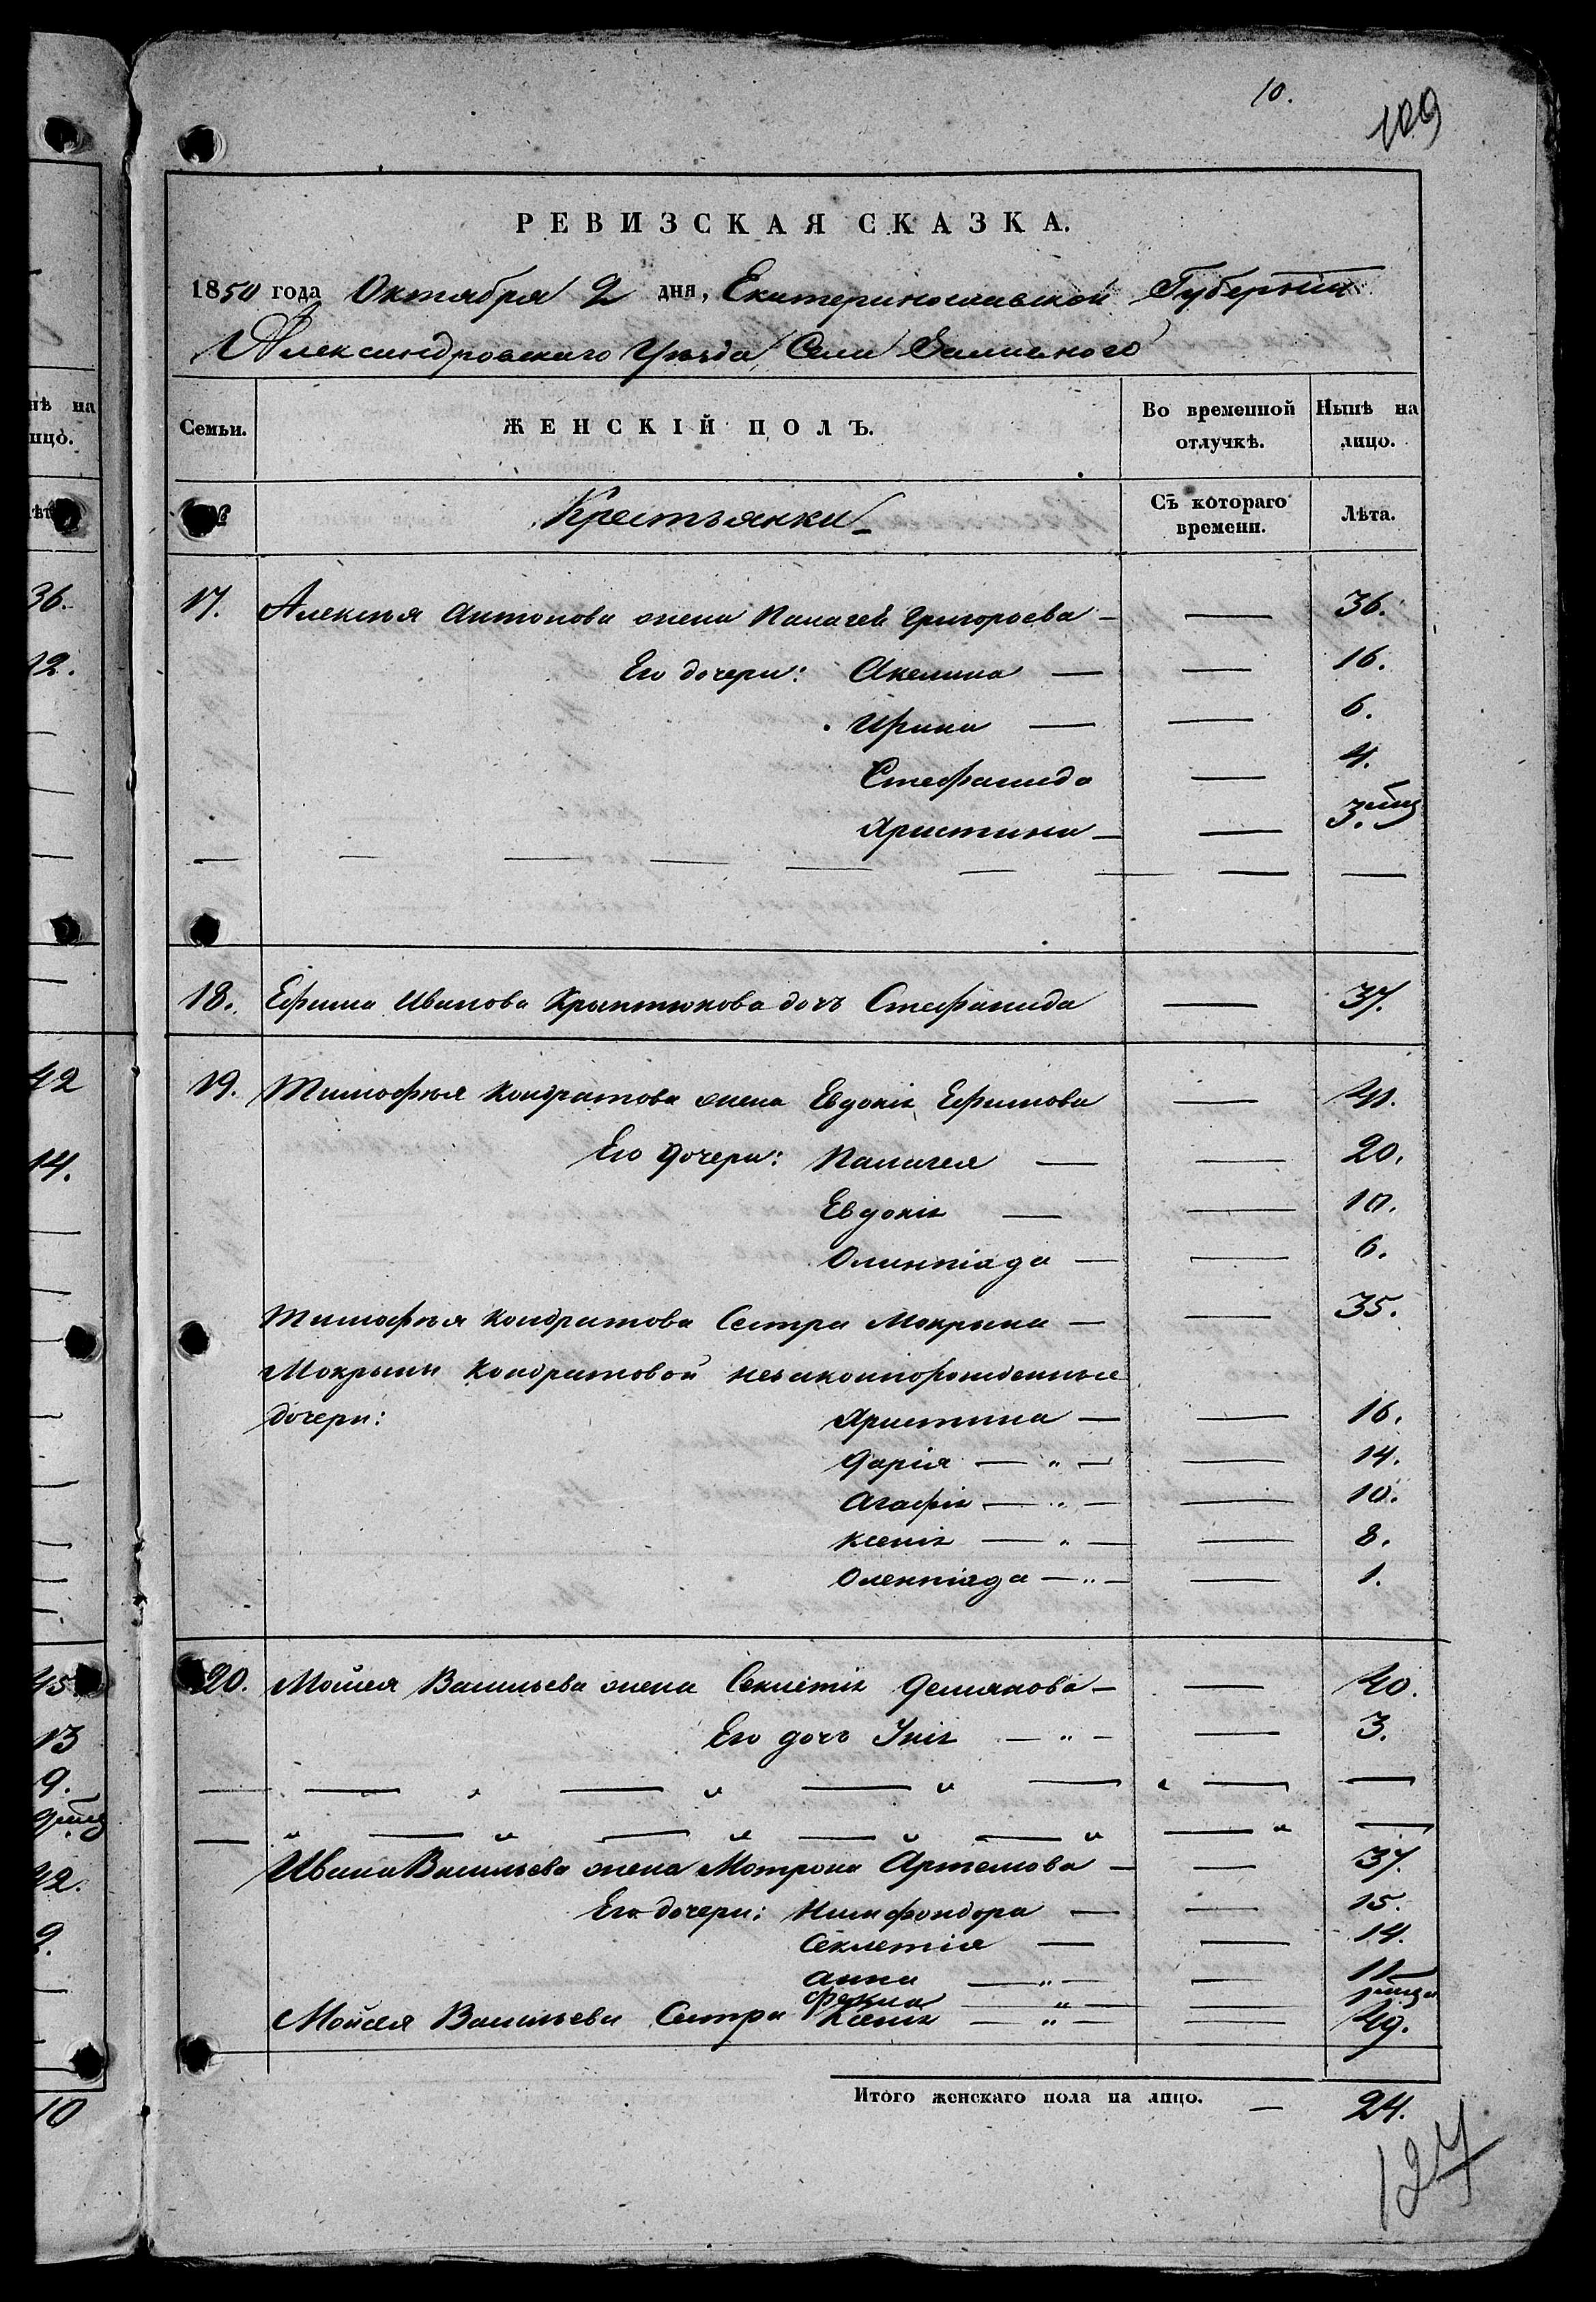 10.
109
РЕВИЗСКАЯ СКАЗКА.
1850 года Октября 2 дня, Екатеринославской Губерніи
Александровскаго Уѣзда, Села
Семьи. ЖЕНСКІЙ ПОЛЪ. Во временной отлучкѣ. Нынѣ на лицо.
№ Крестьянки Съ котораго времени. Лѣта.
17. Алексѣя Антонова жена Палагея Григорьева — — 36.
Его дочери: Акелина — — 16.
Ирина — — 6.
Стефанида — 4.
Христина — — 3. мѣц
18. Ефима Иванова дочь Стефанида — 37.
19. Тимофѣя Кондратова жена Евдокія Ефимова — 40.
Его дочери: Палагея — — 20.
Евдокія — — 10.
Олимпіада — — 6.
Тимофѣя Кондратова Сестра Мокрына — — 35.
Мокрыны Кондратовой незаконорожденные
дочери: Христина — — 16.
Дарія — " — — 14.
Агафія — " — — 10.
Ксенія — " — — 8.
Олемпіяда — " — — 1.
20. Мойсея Васильева жена Секлетія Демянова — — 40.
Его дочь Унія — " — — 3.
Ивана Васильева жена Мотрона Артемова — — 37.
Его дочери: Нимфондора — — 15.
Секлетія — — 14.
Анна — " — — 11
Фекла — " — —
Мойсея Васильева Сестра Ксенія — " — — 49.
Итого женскаго пола на лицо. — 24.
127
нѣ на
ицо.
ѣта
36.
12.
42
14.
45
13
9.
9 мѣц
42.
9.
10